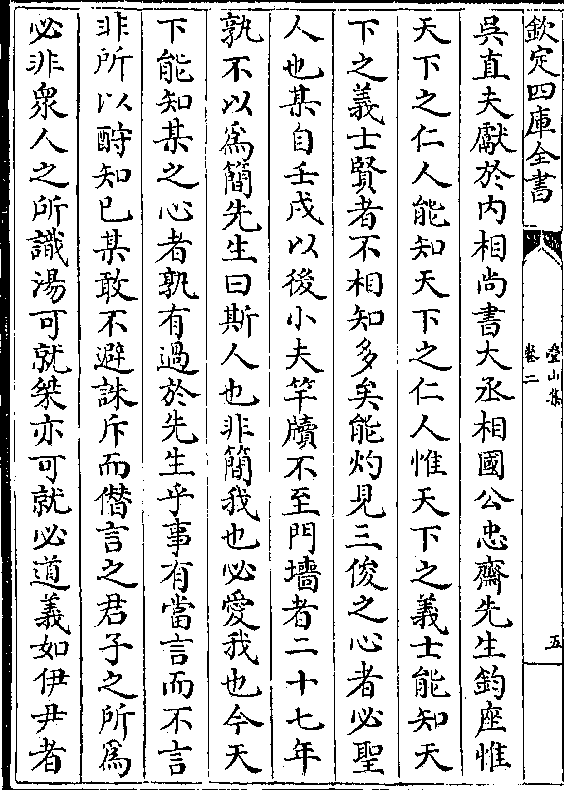 欽定四庫全書
疊山集
卷二
五
吳直夫獻於内相尚書大丞相國公忠齋先生鈞座惟
天下之仁人能知天下之仁人惟天下之義士能知天
下之義士賢者不相知多矣能灼見三俊之心者必聖
人也某自壬戌以後小夫竿牘不至門墻者二十七年
孰不以爲簡先生曰斯人也非簡我也必愛我也今天
下能知某之心者孰有過於先生乎事有當言而不言
非所以酧知已某敢不避誅斥而僭言之君子之所爲
必非衆人之所識湯可就桀亦可就必道義如伊尹者